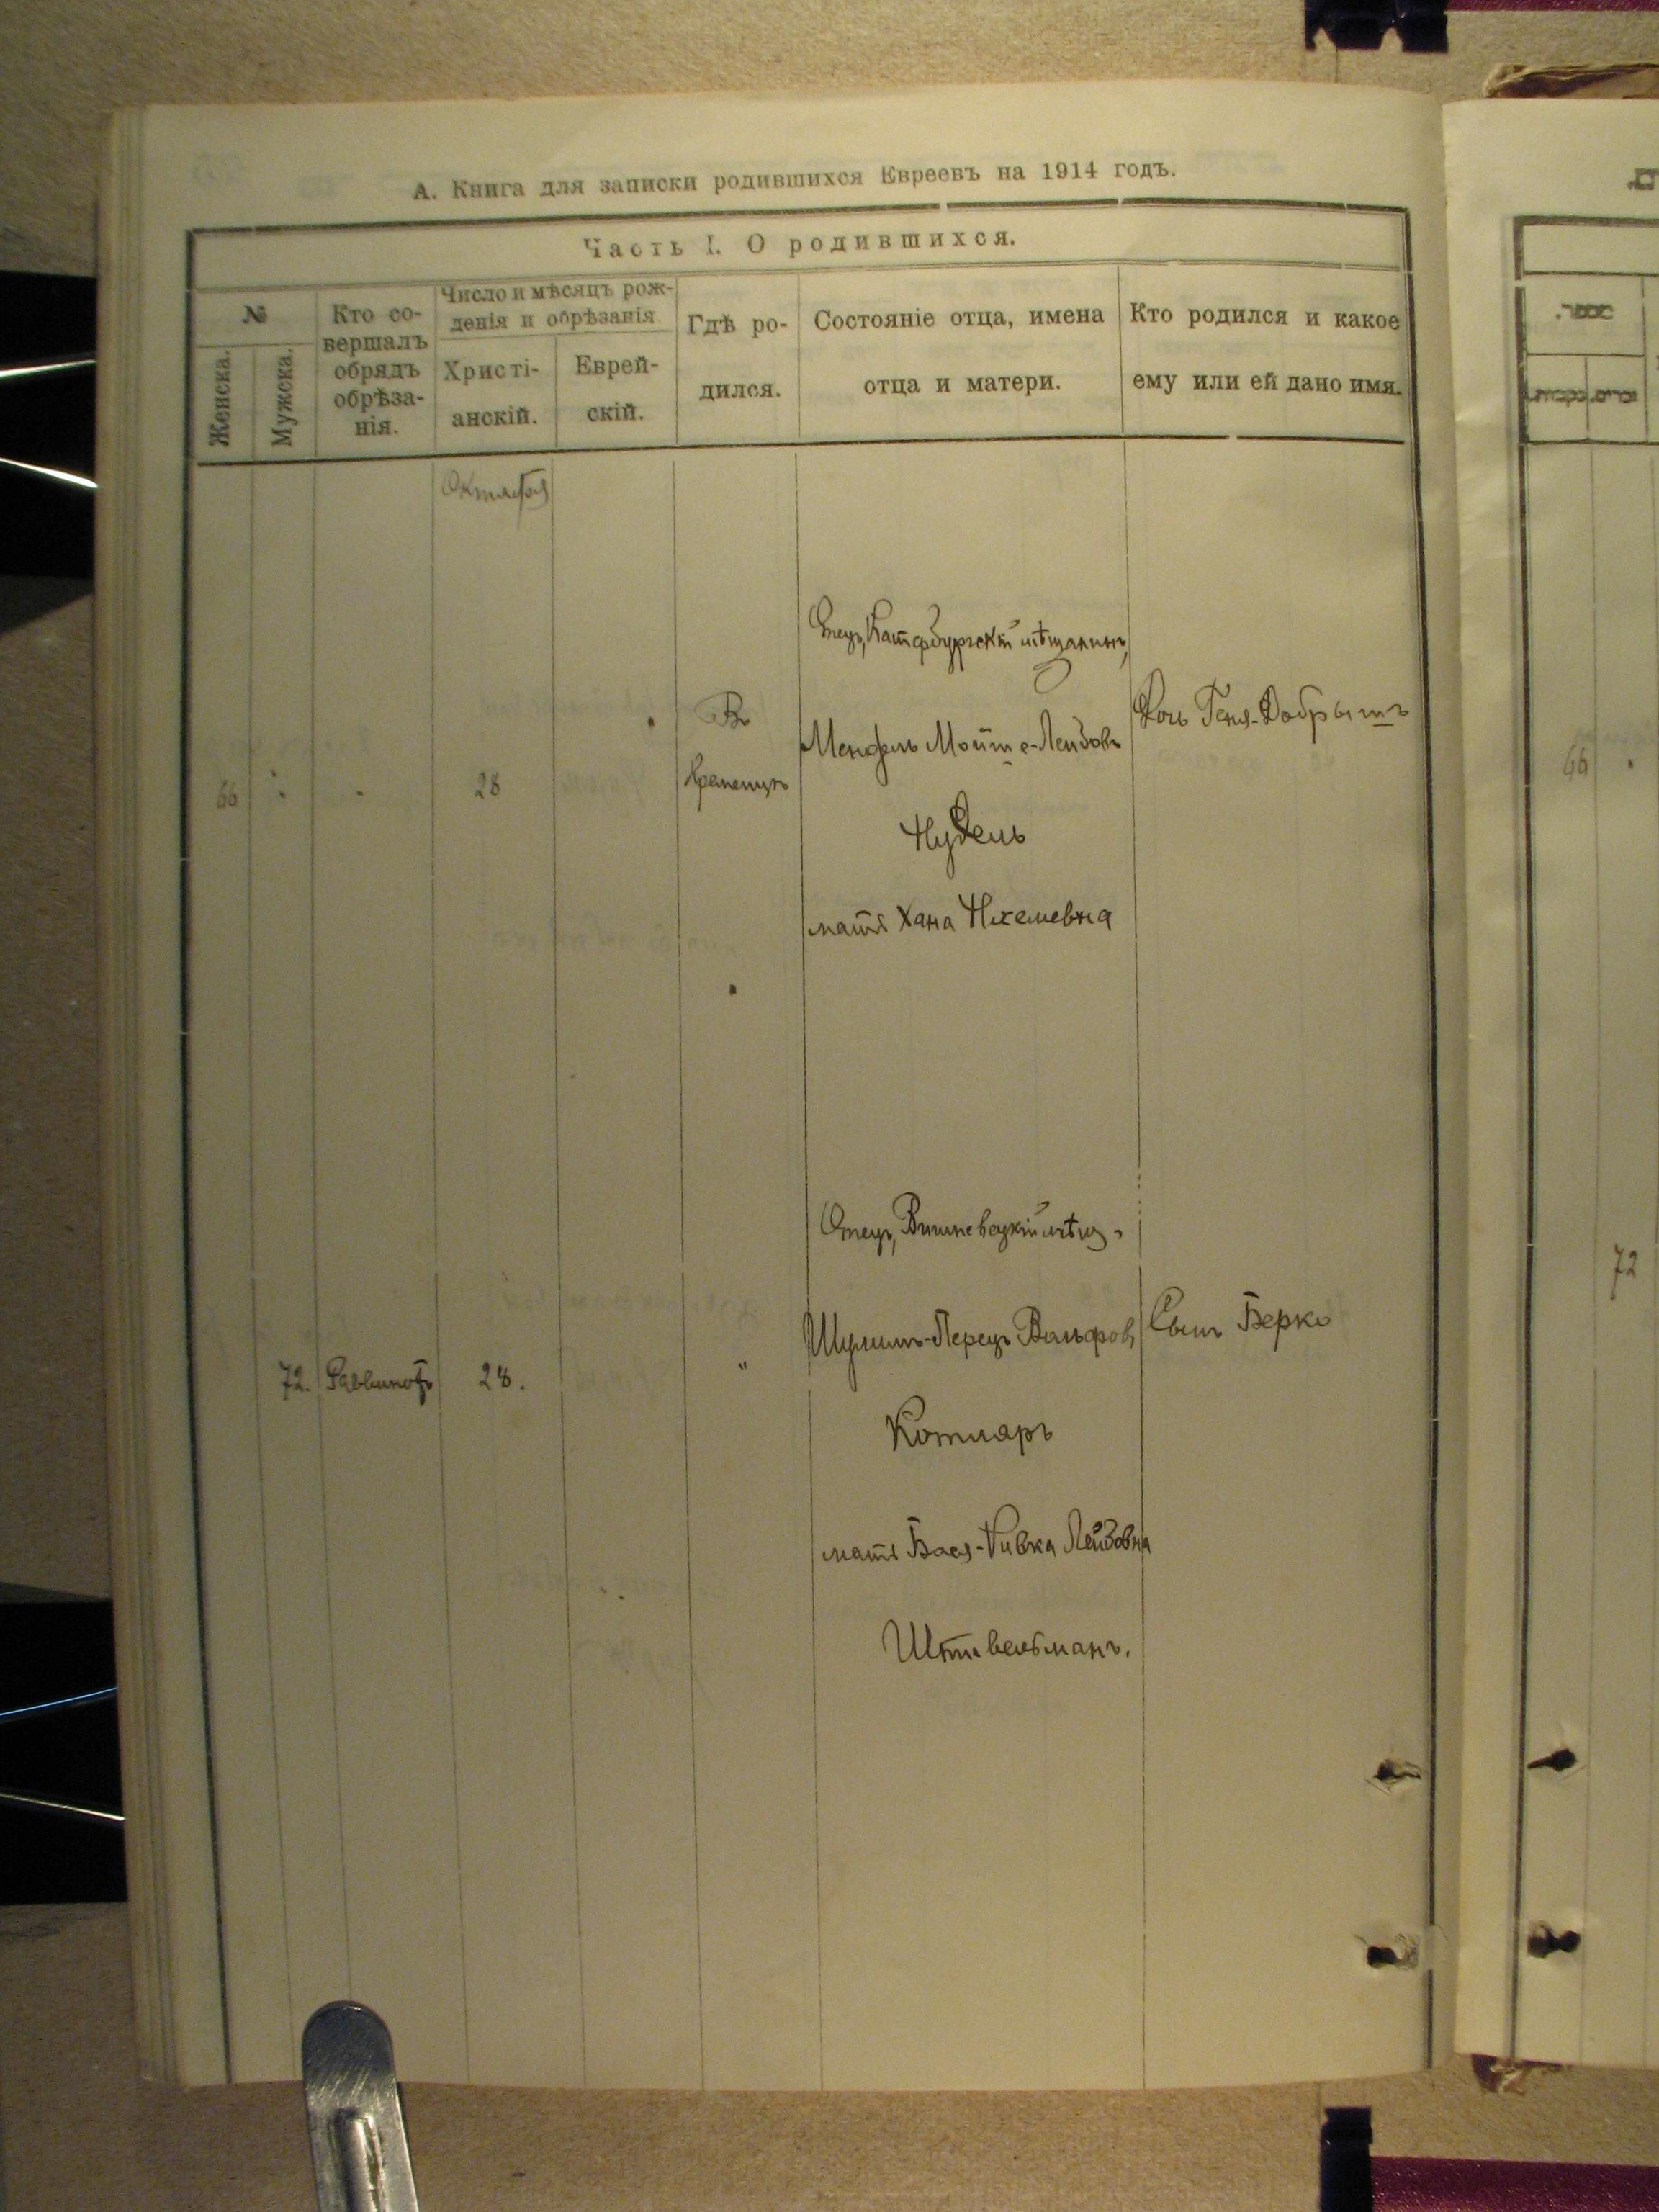 А. Книга для записки родившихся Евреевъ на 1914 годъ.
Часть I. О родившихся.
№
Женска.
Мужска.
Кто со-
вершалъ
обрядъ
обрѣза-
нія.
Число и мѣсяцъ рож-
денія и обрѣзанія
Христі-
анскій.
Еврей-
скій.
Гдѣ ро-
дился.
Состояніе отца, имена
отца и матери.
Кто родился и какое
ему или ей дано имя.
Октября
66
28
Въ
Кременцѣ
Отецъ, Катербургскій мѣщанинъ,
Мендель Мойше-Лейзовъ
Нудель
мать Хана Нхемевна
Дочь Геня-Добрышъ
72.
28.
"
Отецъ, Вишневецкій мѣщ.
Шулимъ-Перецъ Вольфов,
Котляръ
мать Бася-Ривка Лейзовна
Штивельманъ.
Сынъ Берко
66
72